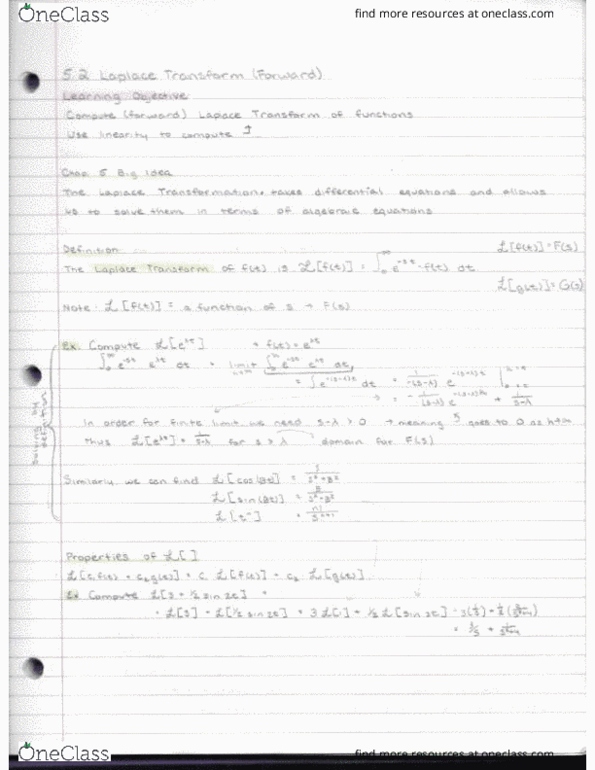 OneClass
find more resources at oneclass.com
5.2 Laplace Transform (Forward)
Learning Objective
Compute (forward) Laplace Transform of functions
Use linearity to compute ↑
Chap. 5 Big Idea
The Laplace Transformation takes differential equations and allows
us to solve them in terms of algebraic equations
Definition
ℒ[f(t)] = F(s)
The Laplace Transform of f(t) is ℒ[f(t)] = ∫₀^∞ e^-st · f(t) dt
ℒ[g(t)] = G(s)
Note: ℒ[f(t)] = a function of s → F(s)
Ex. Compute ℒ[e^λt] • f(t) = e^λt
∫₀^∞ e^-st e^λt dt = limit ∫₀ e^-st e^λt dt
= ∫ e^-(s-λ)t dt = 1/-(s-λ) e^-(s-λ)t
= - 1/(s-λ) e + 1/s-λ
Solving by definition
In order for finite limit we need s-λ > 0 → meaning goes to 0 as
thus ℒ[e^λt] = 1/s-λ for s > λ domain for F(s)
Similarly we can find ℒ[cos(βt)] = s/s²+β²
ℒ[sin(βt)] = β/s²+β²
ℒ[t^n] = n!/s^n+1
Properties of ℒ[ ]
ℒ[c₁f(t) + c₂g(t)] = c₁ ℒ[f(t)] + c₂ ℒ[g(t)]
Ex. Compute ℒ[3 + 1/2 sin 2t]
= ℒ[3] + ℒ[1/2 sin 2t] = 3ℒ[1] + 1/2 ℒ[sin 2t] = 3(1/s) + 1/2 (2/s²+4)
= 3/s + 1/s²+4
OneClass
find more resources at oneclass.com